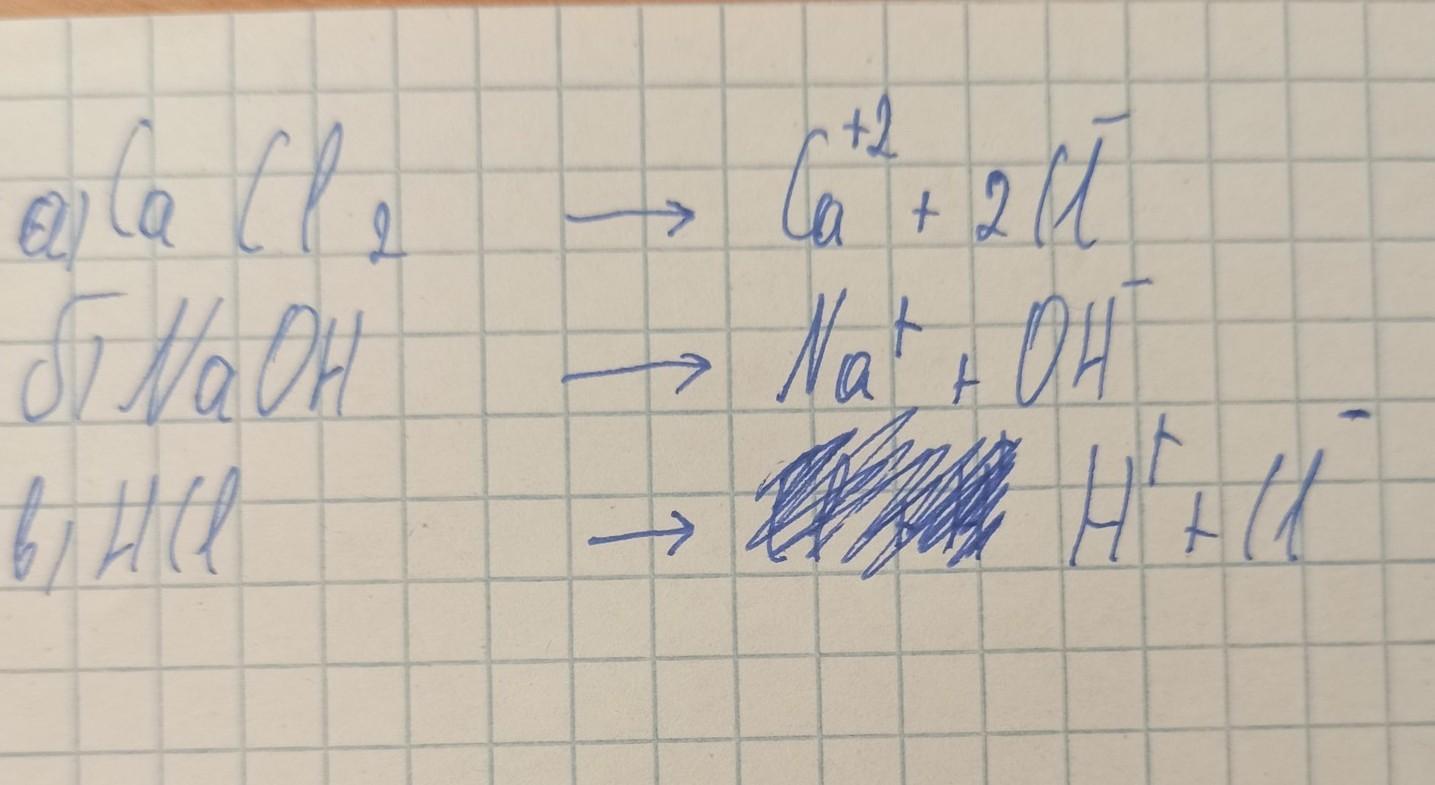 а) CaCl₂ → Ca⁺² + 2Cl⁻
б) NaOH → Na⁺ + OH⁻
в) HCl → H⁺ + Cl⁻